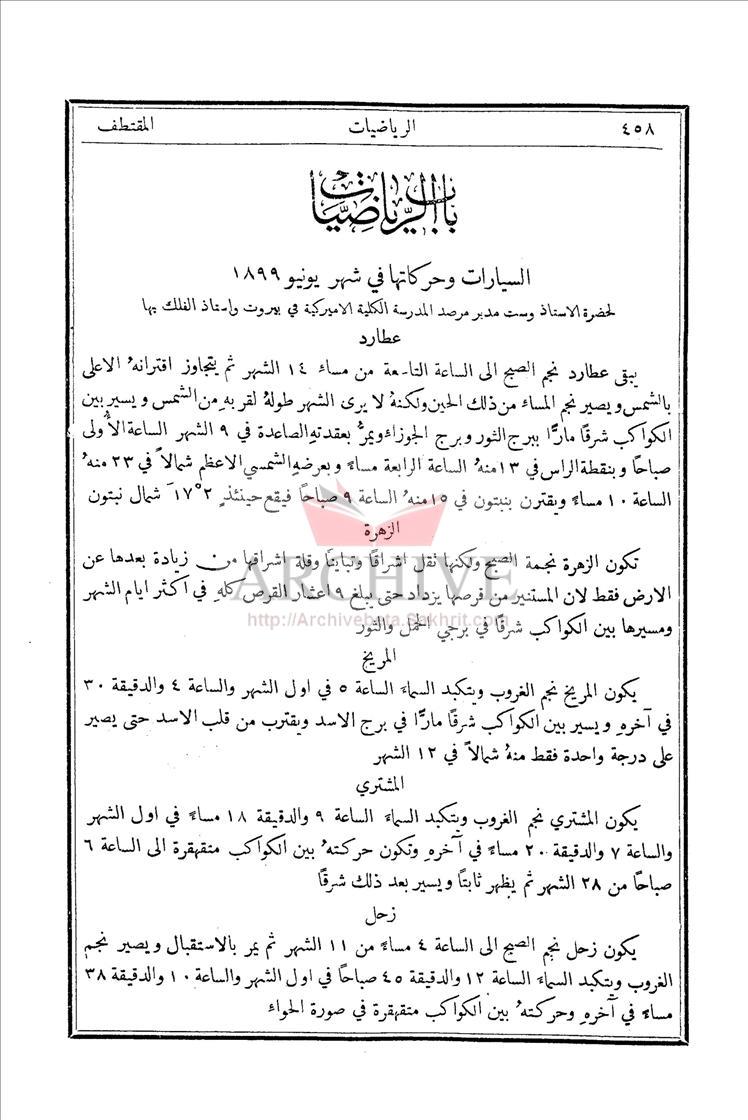 ٤٥٨ الرياضيات المقتطف
باب الرياضيات
السيارات وحركاتها في شهر يونيو ١٨٩٩
لحضرة الاستاذ وست مدير مرصد المدرسة الكلية الاميركية في بيروت واستاذ الفلك بها
عطارد
يبقى عطارد نجم الصبح الى الساعة التاسعة من مساء ١٤ الشهر ثم يتجاوز اقترانهُ الاعلى
بالشمس ويصير نجم المساء من ذلك الحين ولكنهُ لا يرى الشهر طولهُ لقربهِ من الشمس ويسير بين
الكواكب شرقًا مارًّا ببرج الثور وبرج الجوزاء ويمرُّ بعقدتهِ الصاعدة في ٩ الشهر الساعة الأولى
صباحًا وبنقطة الراس في ١٣ منهُ الساعة الرابعة مساءً وبعرضهِ الشمسي الاعظم شمالًا في ٢٣ منهُ
الساعة ١٠ مساءً ويقترن بنبتون في ١٥ منهُ الساعة ٩ صباحًا فيقع حينئذٍ ٢° ١٧َ شمال نبتون
الزهرة
تكون الزهرة نجمة الصبح ولكنها تقل اشراقًا وتباينًا وقلة اشراقها من زيادة بعدها عن
الارض فقط لان المستنير من قرصها يزداد حتى يبلغ ٩ اعشار القرص كلهِ في اكثر ايام الشهر
ومسيرها بين الكواكب شرقًا في برجي الحمل والثور
المريخ
يكون المريخ نجم الغروب ويتكبد السماءَ الساعة ٥ في اول الشهر والساعة ٤ والدقيقة ٣٠
في آخرهِ ويسير بين الكواكب شرقًا مارًّا في برج الاسد ويقترب من قلب الاسد حتى يصير
على درجة واحدة فقط منهُ شمالًا في ١٢ الشهر
المشتري
يكون المشتري نجم الغروب ويتكبد السماءَ الساعة ٩ والدقيقة ١٨ مساءً في اول الشهر
والساعة ٧ والدقيقة ٢٠ مساءً في آخرهِ وتكون حركتهُ بين الكواكب متقهقرة الى الساعة ٦
صباحًا من ٢٨ الشهر ثم يظهر ثابتًا ويسير بعد ذلك شرقًا
زحل
يكون زحل نجم الصبح الى الساعة ٤ مساءً من ١١ الشهر ثم يمر بالاستقبال ويصير نجم
الغروب ويتكبد السماءَ الساعة ١٢ والدقيقة ٤٥ صباحًا في اول الشهر والساعة ١٠ والدقيقة ٣٨
مساءً في آخرهِ وحركتهُ بين الكواكب متقهقرة في صورة الحواء
ARCHIVE
http://Archivebeta.Sakhrit.com